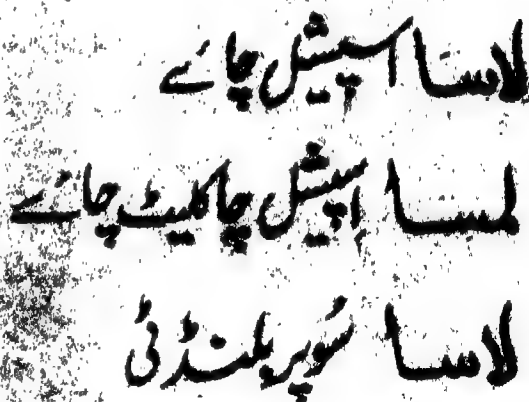 لاسا اسپیشل چائے
لمسا اسپیشل چاکلیٹ چائے
لاسا سُوپر بلنڈ ٹی